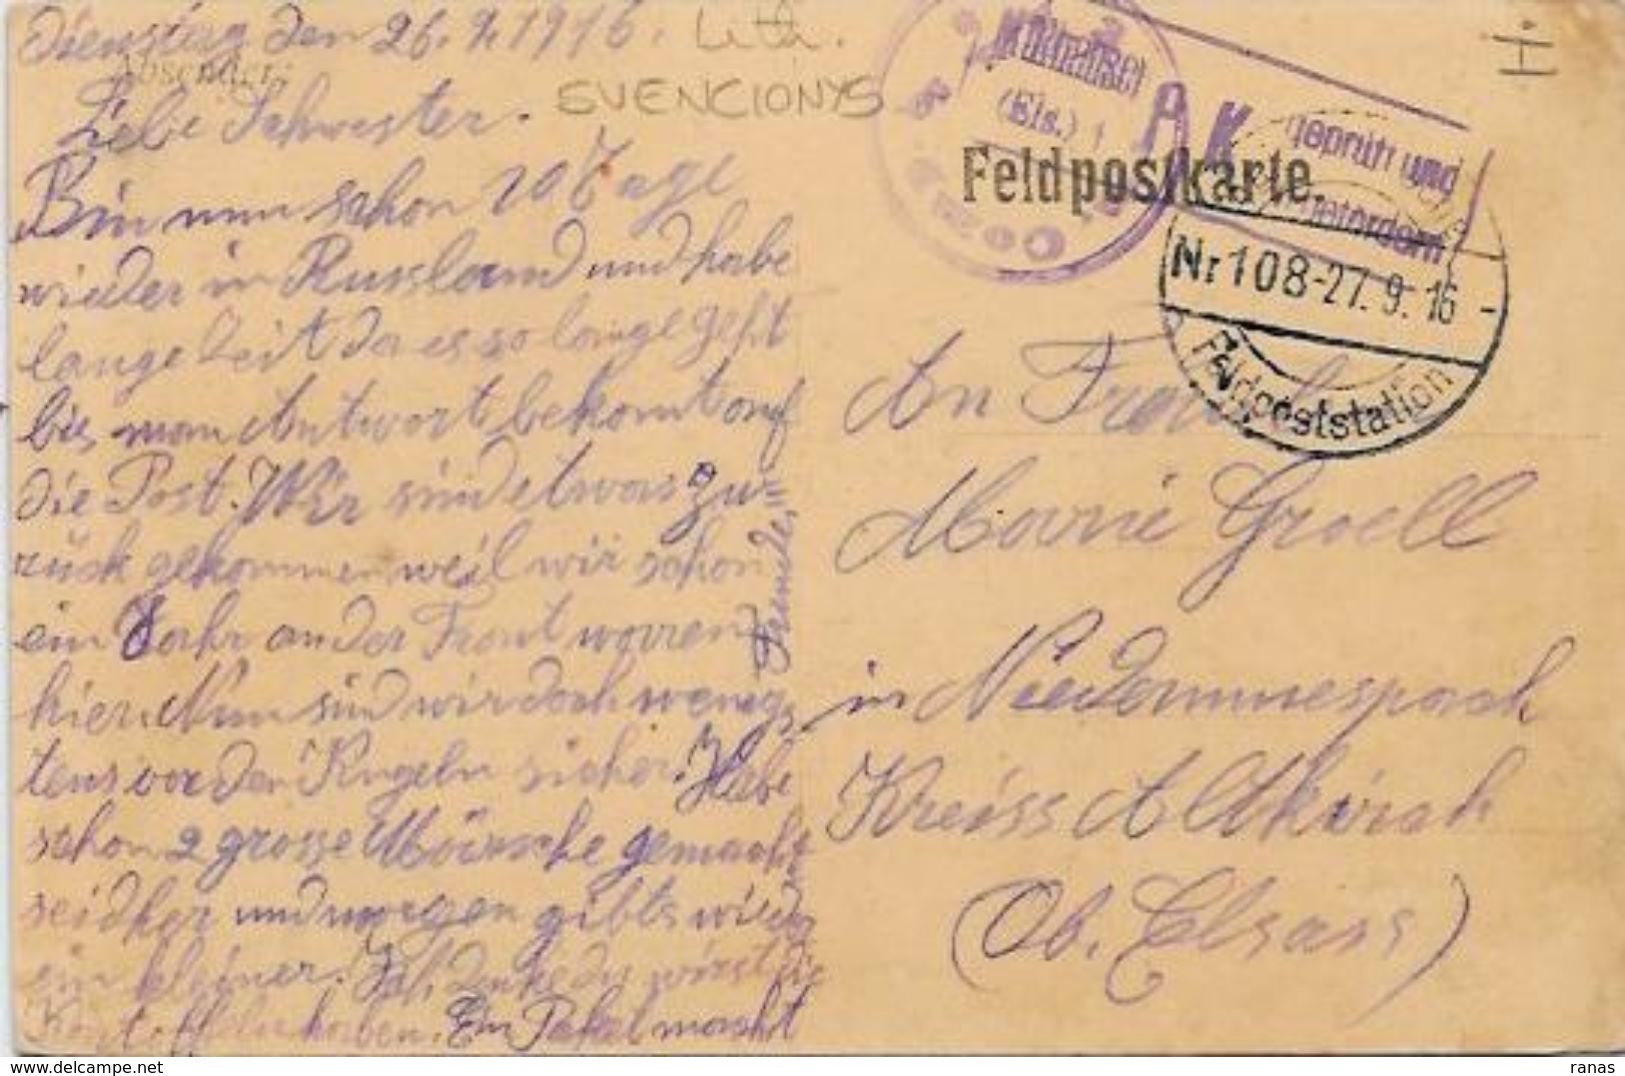 Dienstag den 26.9.1916.
Lith.
SVENCIONYS
Absender:
Liebe Schwester.
Bin nun schon 10 Tage
wieder in Russland und habe
lange Zeit da es so lange geht
bis man Antwort bekomt auf
die Post. Wir sind etwas zu=
rück gekommen weil wir schon
ein Jahr an der Front warren
hier. Nun sind wir doch wenigs
tens vor den Kugeln sicher. Habe
schon 2 grosse Märsche gemacht
seidher und morgen gibts wieder
ein kleiner. Ich denke du wirst die
Kartoffeln haben. Ein Paket macht
Freude.
Feldpostkarte
Mülhausen
(Els.) 1
A K
geprüft und
zu befördern
Nr 108 -27.9.16
Feldpoststation
An Frau
Marie Groell
in Niedermuespach
Kreiss Altkirch
(Ob. Elsass)
ranas